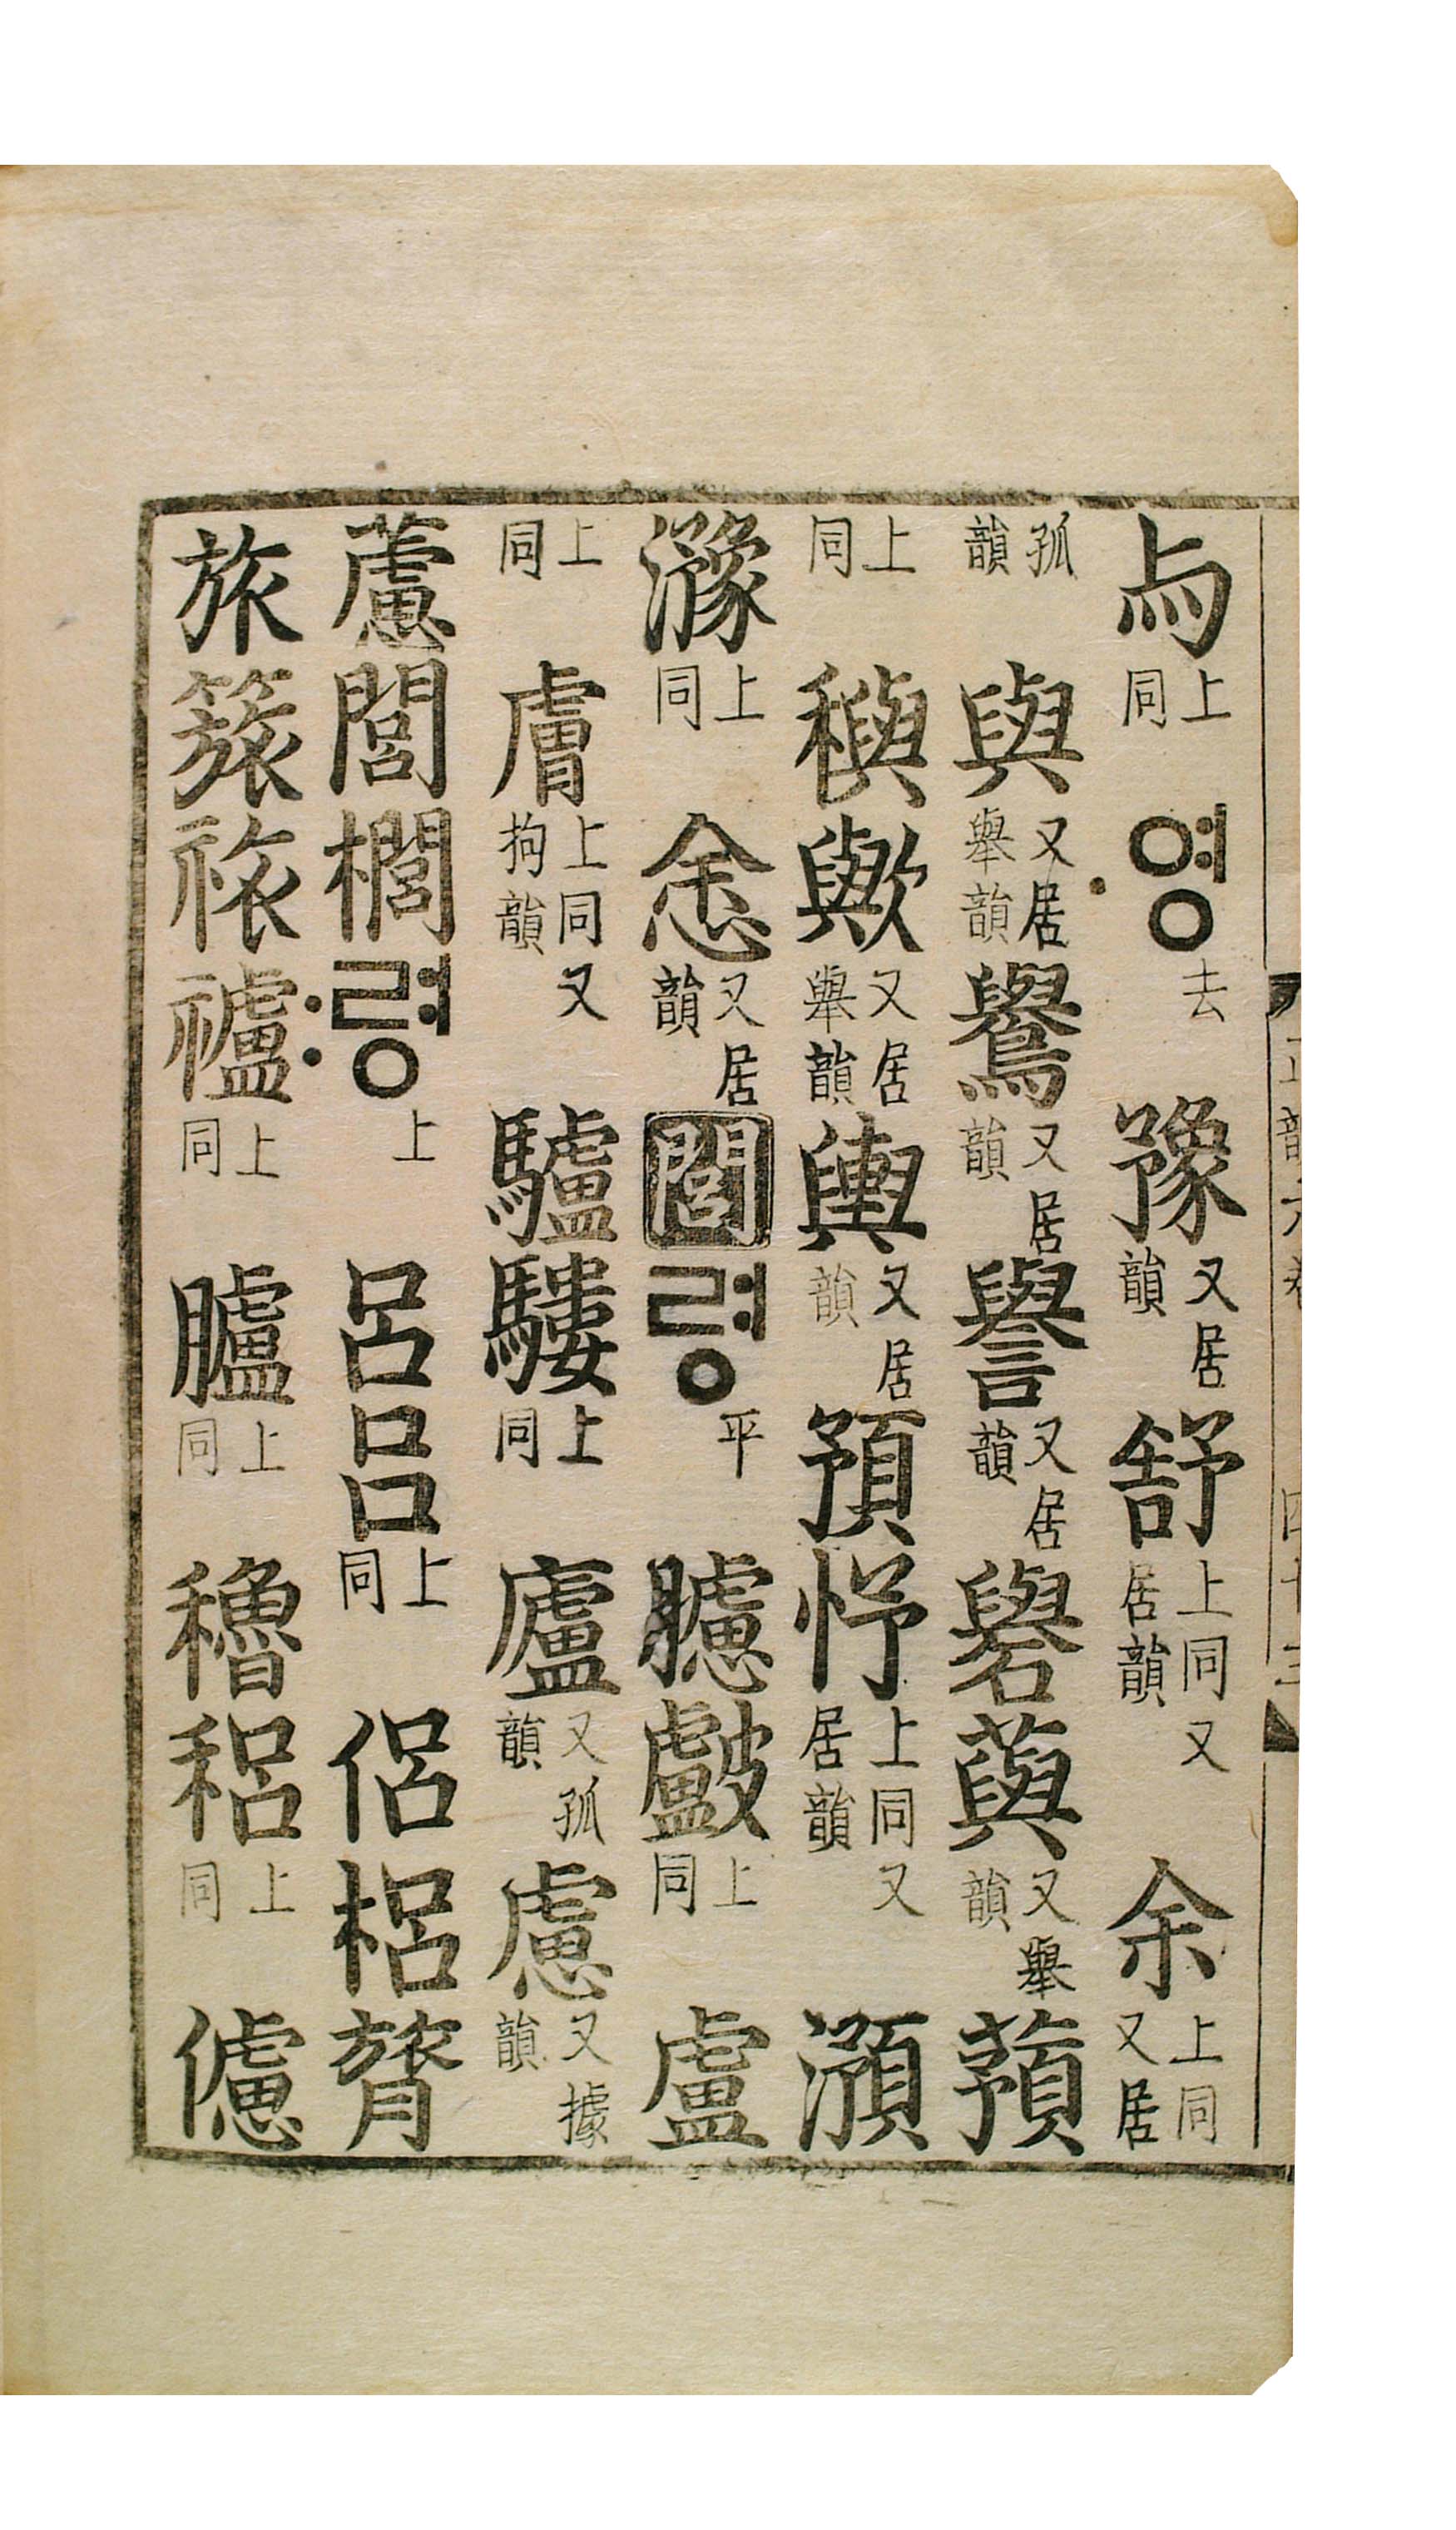 与上同영〮去豫又居韻舒上同又居韻余上同又居
孤韻與又居舉韻鸒又居韻譽又居韻礜藇又舉韻蕷
上同穥歟又居舉韻輿又居韻預忬上同又居韻澦
上同悆又居韻閭령平上同盧
上同膚上同又拘韻驢上同廬又孤韻慮又據韻
藘閭櫚령〯上呂吕上同侶梠膂
旅祣上同臚上同穭稆上同儢